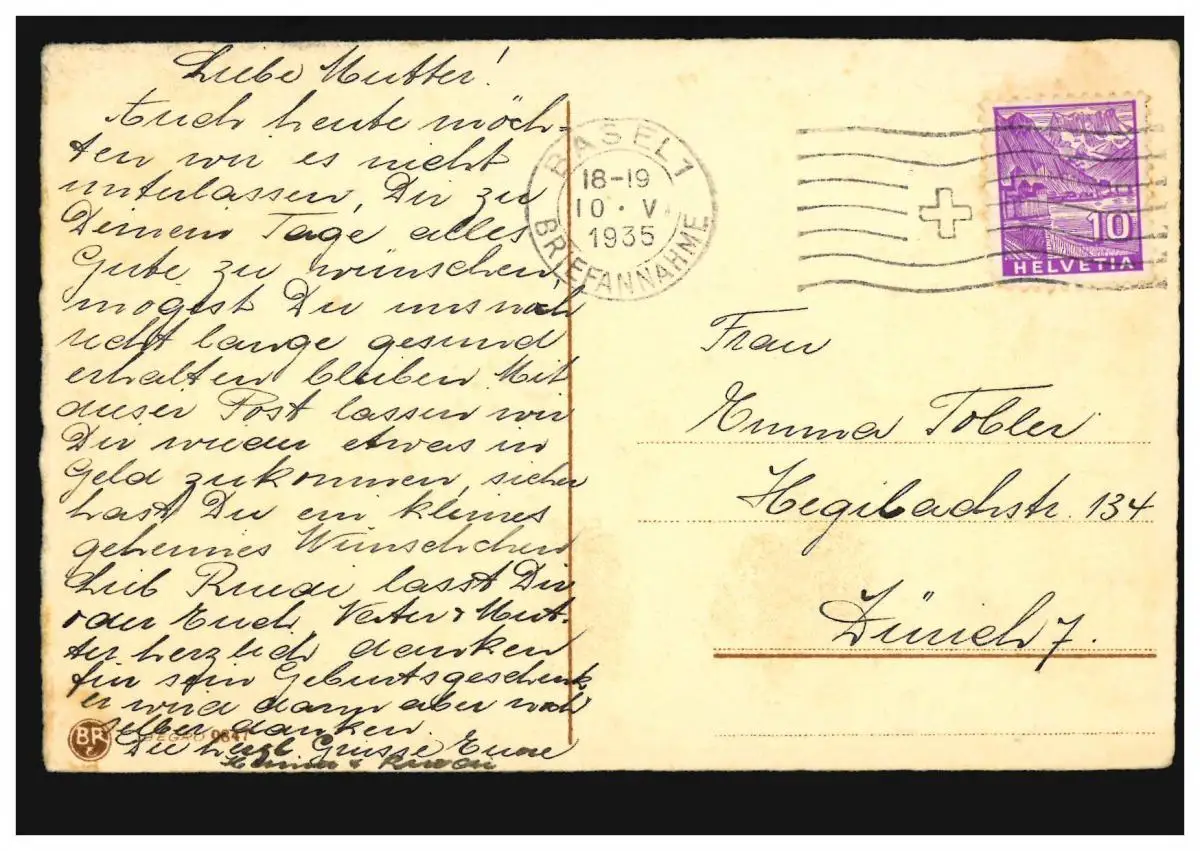 Liebe Mutter!
Auch heute möch-
ten wir es nicht
unterlassen, Dir zu
Deinem Tage alles
Gute zu wünschen,
mögest Du uns noch
recht lange gesund
erhalten bleiben. Mit
dieser Post lassen wir
Dir wieder etwas in
Geld zukommen, sicher
hast Du ein kleines
geheimes Wünschchen
Lieb Ruedi lasst Dir
oder Euch, Vater & Mut-
ter herzlich danken
für sein Geburtsgeschenk,
er wird dann aber noch
selber danken.
Die herzl Grüsse Eure
& Ruedi
BR
0647
BASEL 1
18-19
10. V.
1935
BRIEFANNAHME
10
HELVETIA
Frau
Emma Tobler
Hegibachstr. 134
Zürich 7.